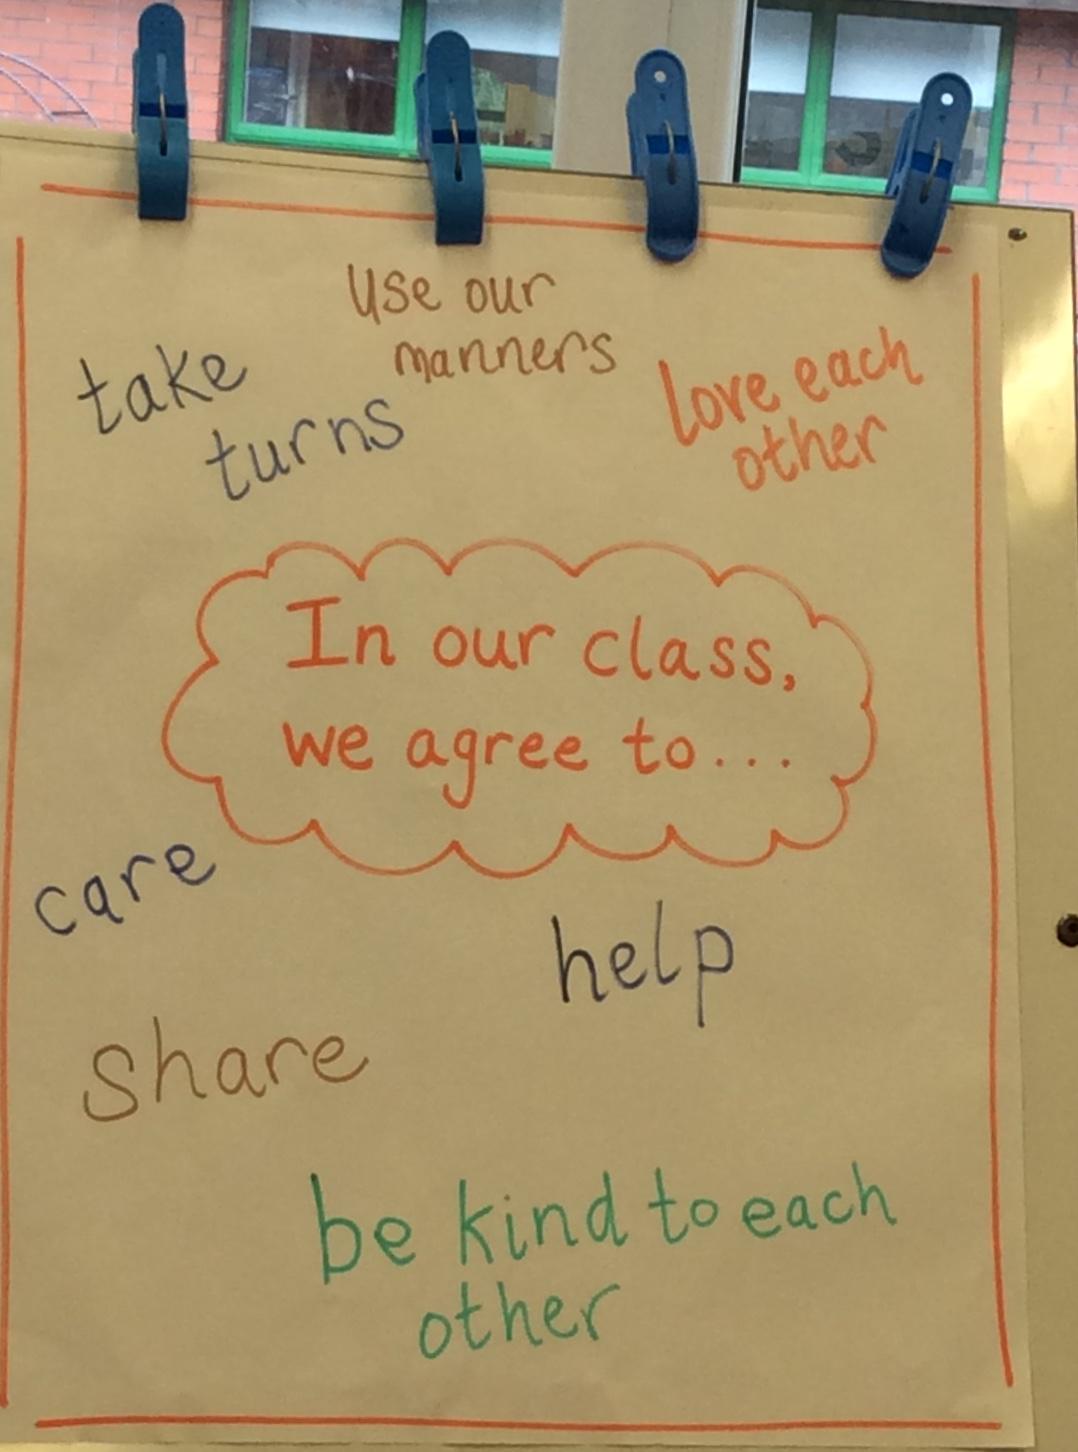 use our
manners
take
turns
love each
other
In our class,
we agree to...
care
help
share
be kind to each
other